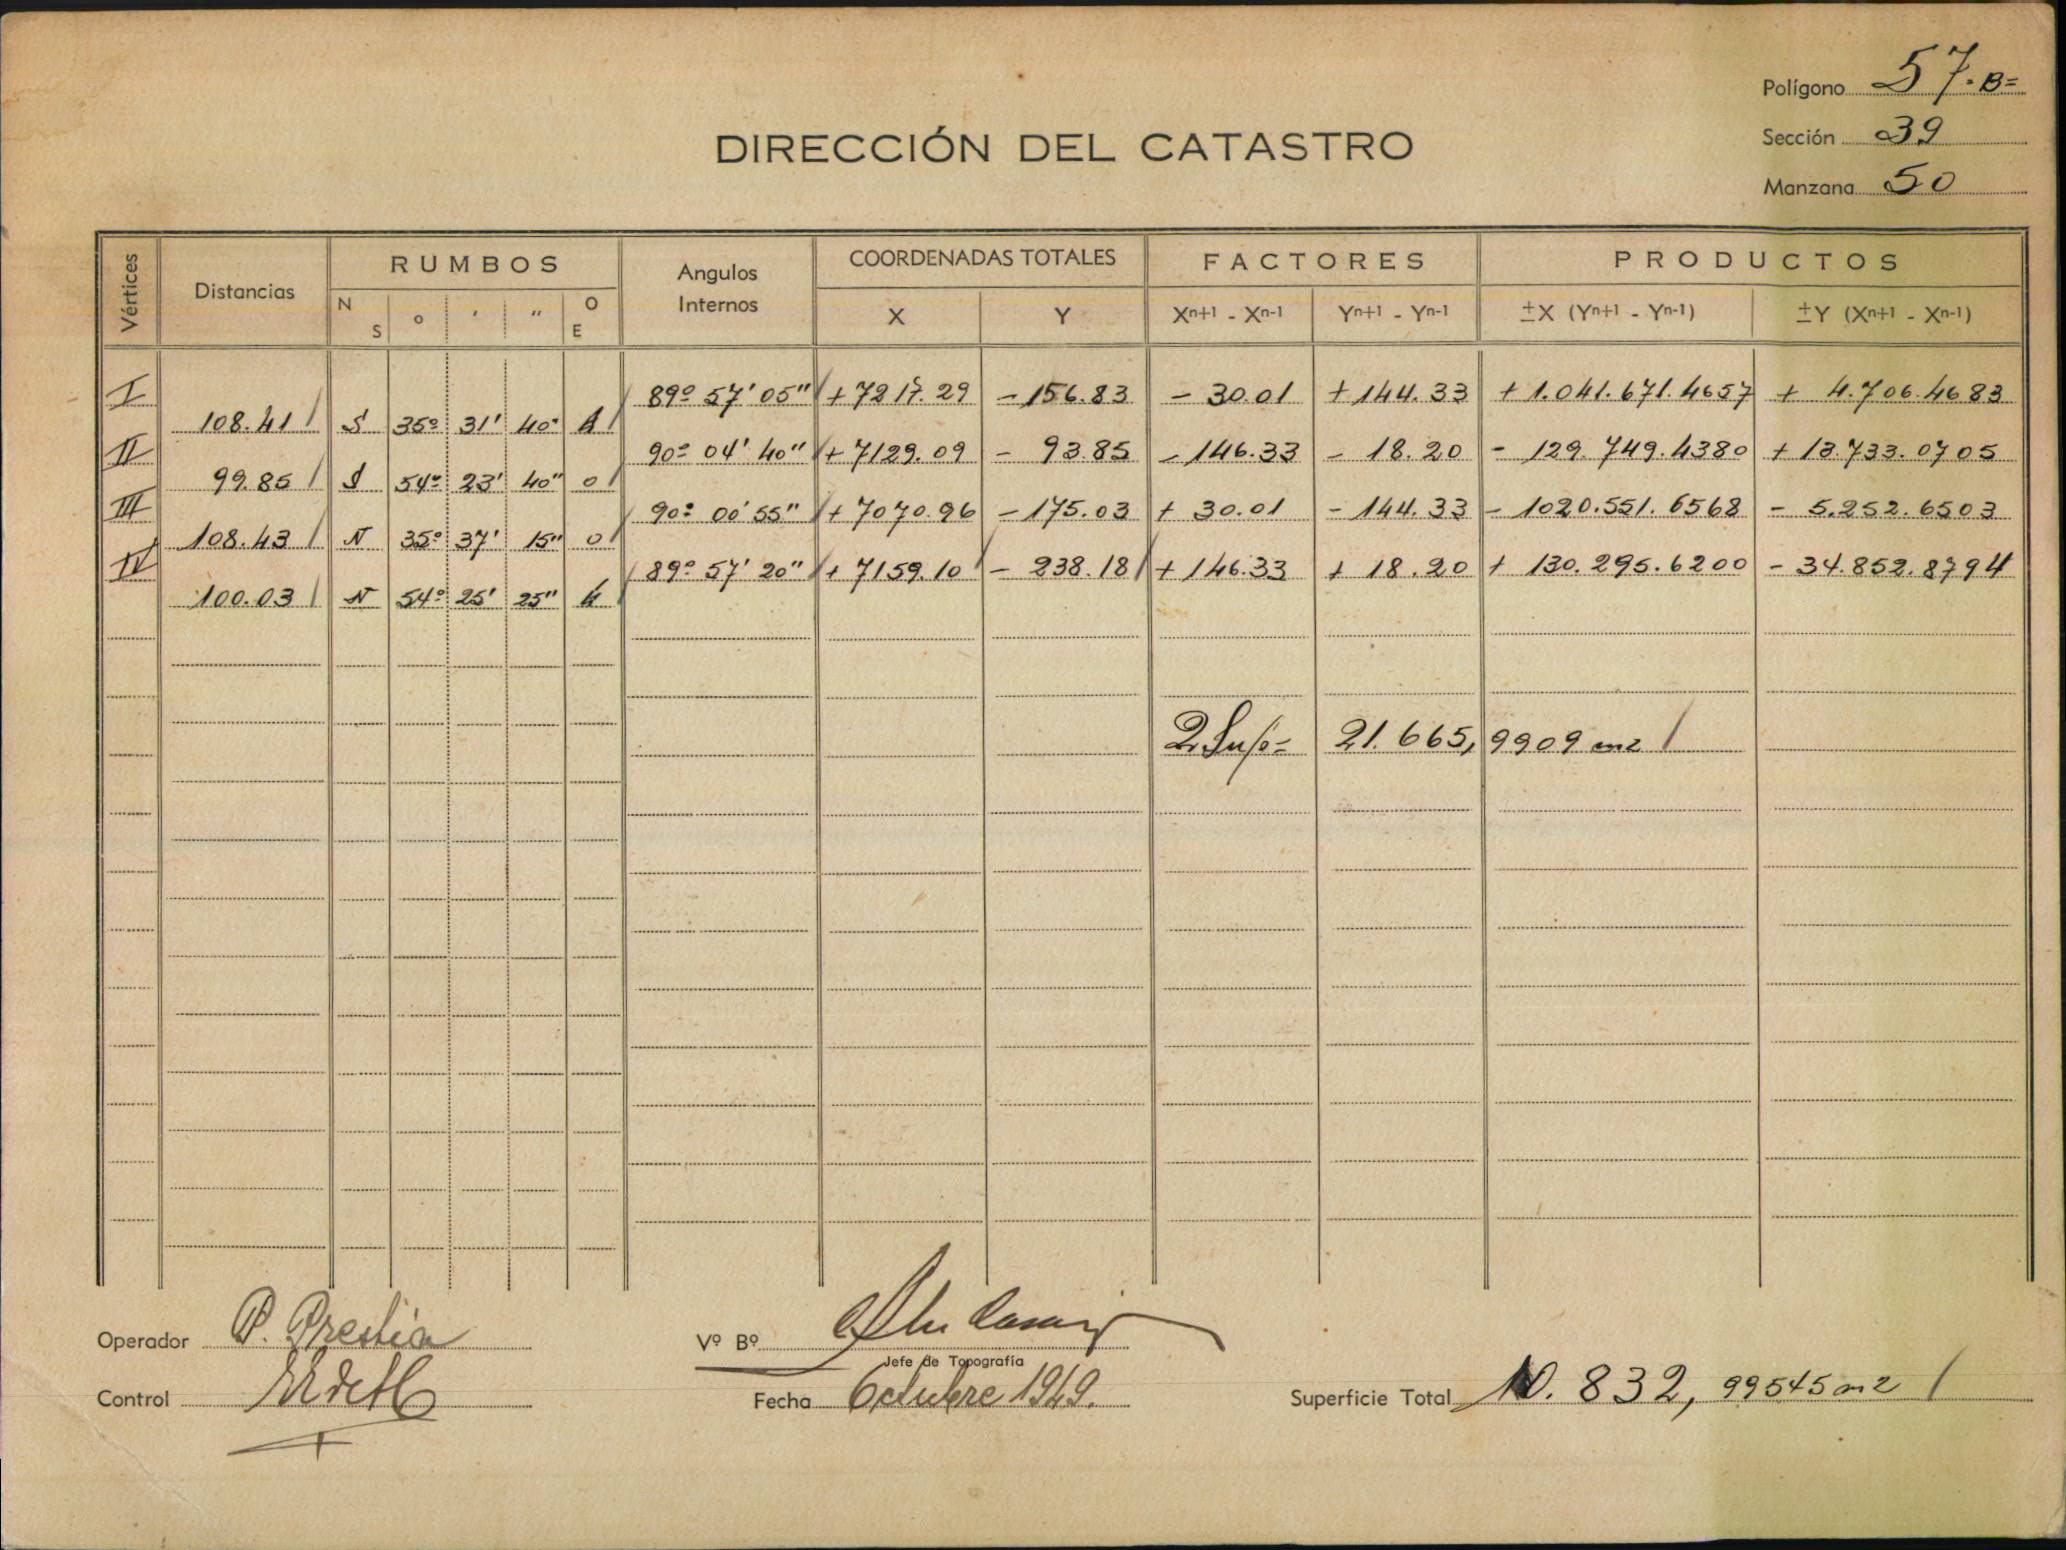 Polígono 57-B=
DIRECCIÓN DEL CATASTRO
Sección 39
Manzana 50
Vértices Distancias RUMBOS Angulos Internos COORDENADAS TOTALES FACTORES PRODUCTOS
N S ° ' " O E X Y Xⁿ⁺¹ - Xⁿ⁻¹ Yⁿ⁺¹ - Yⁿ⁻¹ ±X (Yⁿ⁺¹ - Yⁿ⁻¹) ±Y (Xⁿ⁺¹ - Xⁿ⁻¹)
I 89º 57' 05" + 7217.29 - 156.83 - 30.01 + 144.33 + 1.041.671.4657 + 4.706.4683
108.41 S 35º 31' 40"
II 90º 04' 40" + 7129.09 - 93.85 - 146.33 - 18.20 - 129.749.4380 + 13.733.0705
99.85 S 54º 23' 40" O
III 90º 00' 55" + 7070.96 - 175.03 + 30.01 - 144.33 - 1020.551.6568 - 5.252.6503
108.43 N 35º 37' 15" O
IV 89º 57' 20" + 7159.10 - 238.18 + 146.33 + 18.20 + 130.295.6200 - 34.852.8794
100.03 N 54º 25' 25"
2 Sup= 21.665,9909 m2
Operador P. Prestia Vº Bº
Jefe de Topografía
Control Fecha Octubre 1949. Superficie Total 10.832,99545 m2